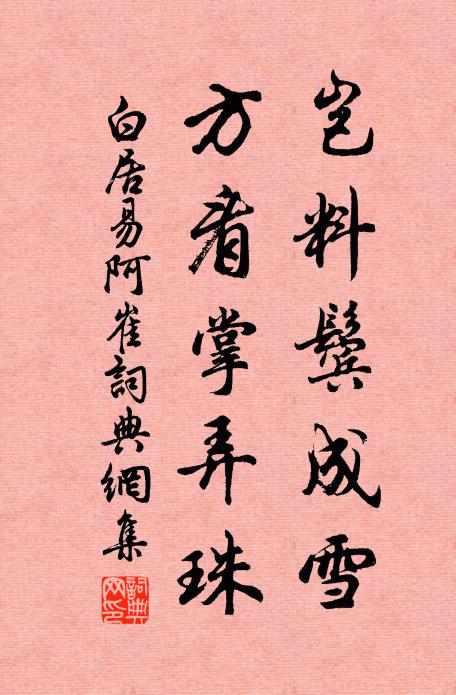 豈料鬢成雪
方看掌弄珠
白居易阿崔詞典網集
詞典網印